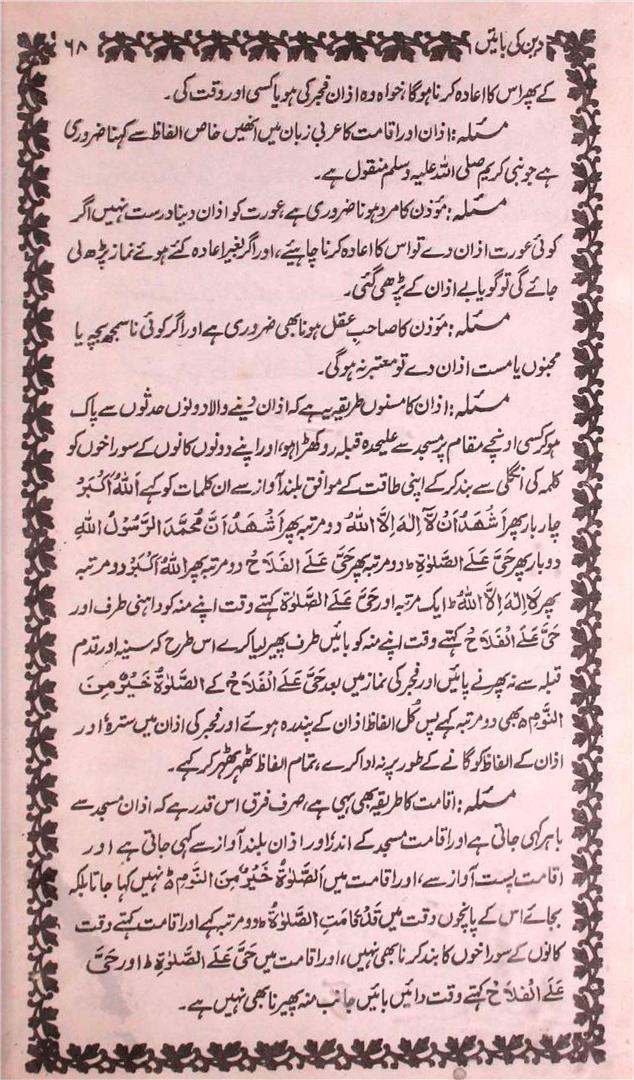 دین کی باتیں ۶۸
کے پھر اس کا اعادہ کرنا ہوگا خواہ وہ اذان فجر کی ہو یا کسی اور وقت کی۔
مسئلہ: اذان اور اقامت کا عربی زبان میں انھیں خاص الفاظ سے کہنا ضروری
ہے جو نبی کریم صلی اللہ علیہ وسلم منقول ہے۔
مسئلہ: مؤذن کا مرد ہونا ضروری ہے عورت کو اذان دینا درست نہیں اگر
کوئی عورت اذان دے تو اس کا اعادہ کرنا چاہیئے، اور اگر بغیر اعادہ کئے ہوئے نماز پڑھ لی
جائے گی تو گویا بے اذان کے پڑھی گئی۔
مسئلہ: مؤذن کا صاحبِ عقل ہونا بھی ضروری ہے اور اگر کوئی ناسمجھ بچہ یا
مجنوں یا مست اذان دے تو معتبر نہ ہوگی۔
مسئلہ: اذان کا مسنون طریقہ یہ ہے کہ اذان دینے والا دونوں حدثوں سے پاک
ہو کر کسی اونچے مقام پر مسجد سے علیحدہ قبلہ رو کھڑا ہو، اور اپنے دونوں کانوں کے سوراخوں کو
کلمہ کی انگلی سے بند کر کے اپنی طاقت کے موافق بلند آواز سے ان کلمات کو کہے اَللهُ اَكْبَرُ
چار بار پھر اَشْهَدُ اَنْ لَّآ اِلٰهَ اِلَّا اللهُ دو مرتبہ پھر اَشْهَدُ اَنَّ مُحَمَّدَ الرَّسُوْلُ اللهِ
دو بار پھر حَیَّ عَلَے الصَّلٰوةِ ط دو مرتبہ پھر حَیَّ عَلَے الْفَلَاحْ دو مرتبہ پھر اَللهُ اَكْبَرْ دو مرتبہ
پھر لَا اِلٰهَ اِلَّا اللهُ ط ایک مرتبہ اور حَیَّ عَلَے الصَّلٰوةْ کہتے وقت اپنے منہ کو داہنی طرف اور
حَیَّ عَلَے الْفَلَاحْ کہتے وقت اپنے منہ کو بائیں طرف پھیر لیا کرے اس طرح کہ سینہ اور قدم
قبلہ سے نہ پھرنے پائیں اور فجر کی نماز میں بعد حَیَّ عَلَے الْفَلَاحْ کے اَلصَّلٰوةُ خَیْرٌ مِّنَ
النَّوْمِ ط بھی دو مرتبہ کہے پس کُل الفاظ اذان کے پندرہ ہوئے اور فجر کی اذان میں سترہ اور
اذان کے الفاظ کو گانے کے طور پر نہ ادا کرے، تمام الفاظ ٹھہر ٹھہر کر کہے۔
مسئلہ: اقامت کا طریقہ بھی یہی ہے، صرف فرق اس قدر ہے کہ اذان مسجد سے
باہر کہی جاتی ہے اور اقامت مسجد کے اندر، اور اذان بلند آواز سے کہی جاتی ہے اور
اقامت پست آواز سے، اور اقامت میں اَلصَّلٰوةُ خَیْرٌ مِّنَ النَّوْمِ ط نہیں کہا جاتا بلکہ
بجائے اس کے پانچوں وقت میں قَدْ قَامَتِ الصَّلٰوةُ ط دو مرتبہ کہے اور اقامت کہتے وقت
کانوں کے سوراخوں کا بند کرنا بھی نہیں، اور اقامت میں حَیَّ عَلَے الصَّلٰوةِ ط اور حَیَّ
عَلَے الْفَلَاحْ کہتے وقت دائیں بائیں جانب منہ پھیرنا بھی نہیں ہے۔